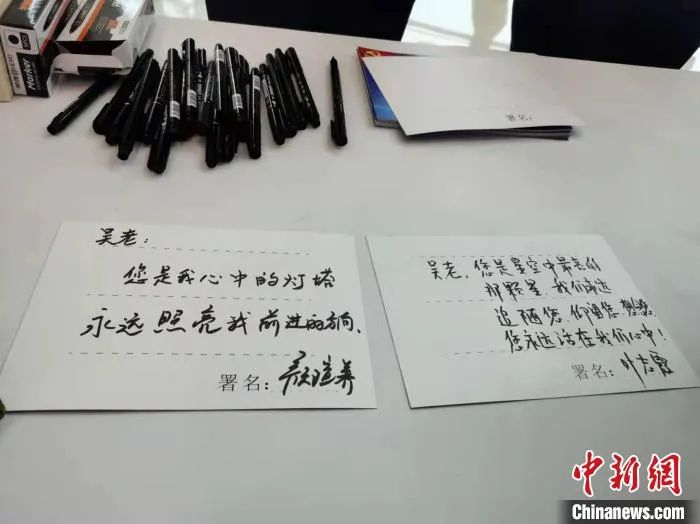 Marker
署名：
吴老：
您是我心中的灯塔
永远照亮我前进的方向.
署名：
吴老,您是星空中最亮的
那颗星,我们永远
追随您 仰望您 想念您
您永远活在我们心中！
署名：叶志霞
中新网
Chinanews.com